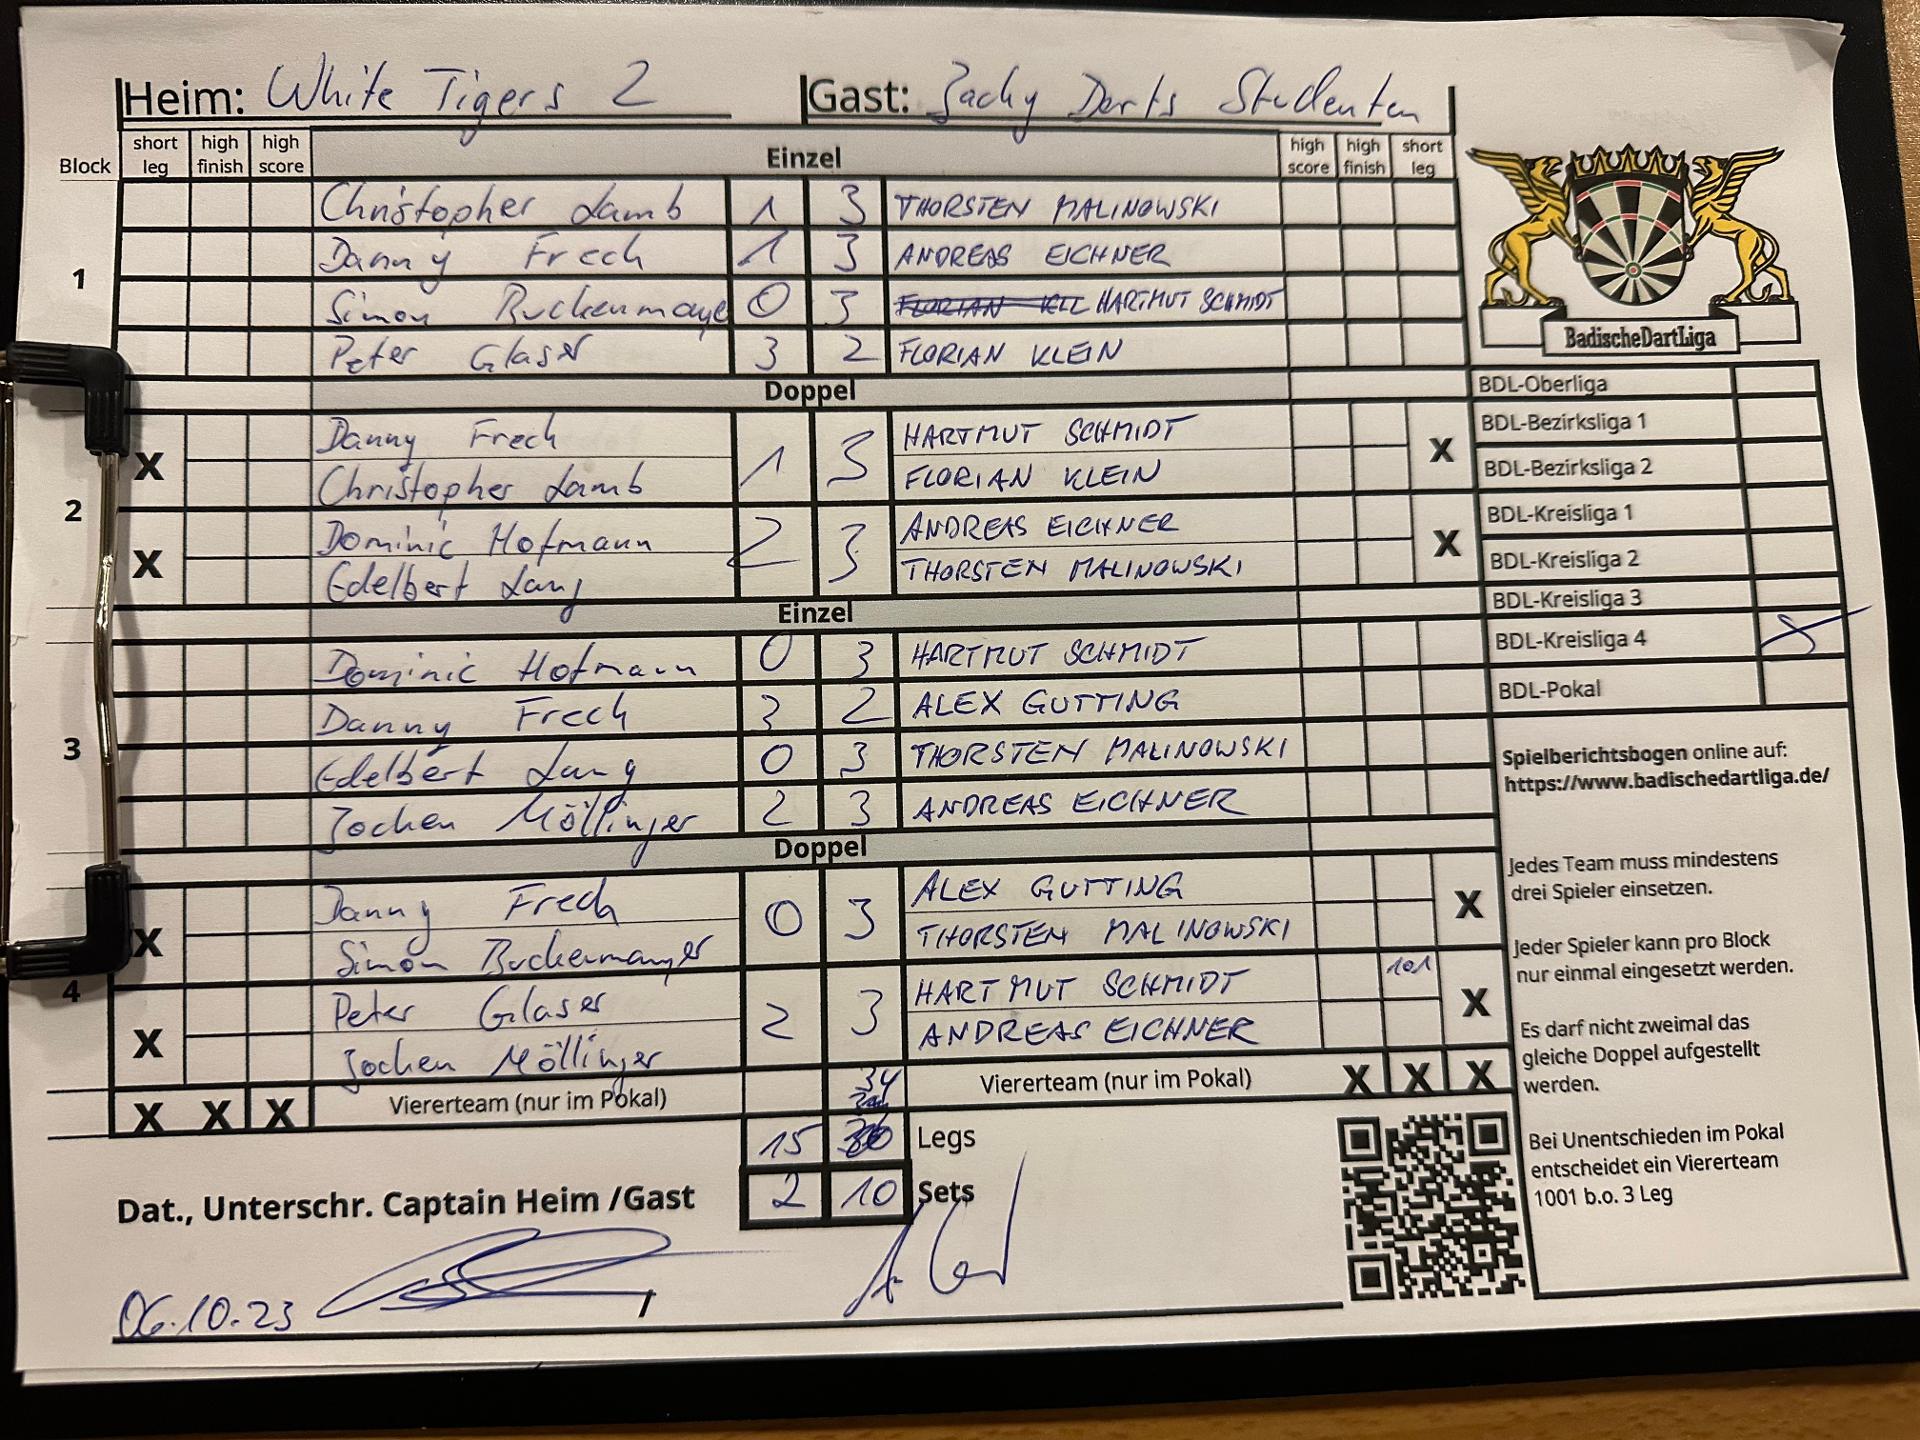 Heim: White Tigers 2 Gast: Zacky Darts Studenten
Block short leg high finish high score Einzel high score high finish short leg
1
Christopher Lamb 1 3 THORSTEN MALINOWSKI
Danny Frech 1 3 ANDREAS EICHNER
Simon Buckenmaye 0 3 HARTMUT SCHMIDT
Peter Glaser 3 2 FLORIAN KLEIN
Doppel
2
X Danny Frech 1 3 HARTMUT SCHMIDT X
Christopher Lamb FLORIAN KLEIN
X Dominic Hofmann 2 3 ANDREAS EICHNER X
Edelbert Lang THORSTEN MALINOWSKI
Einzel
3
Dominic Hofmann 0 3 HARTMUT SCHMIDT
Danny Frech 3 2 ALEX GUTTING
Edelbert Lang 0 3 THORSTEN MALINOWSKI
Jochen Möllinger 2 3 ANDREAS EICHNER
Doppel
4
X Danny Frech 0 3 ALEX GUTTING X
Simon Buckenmayer THORSTEN MALINOWSKI
X Peter Glaser 2 3 HARTMUT SCHMIDT 101 X
Jochen Möllinger ANDREAS EICHNER
X X X Viererteam (nur im Pokal) 34 Viererteam (nur im Pokal) X X X
15 Legs
2 10 Sets
Dat., Unterschr. Captain Heim /Gast
06.10.23 /
BadischeDartLiga
BDL-Oberliga
BDL-Bezirksliga 1
BDL-Bezirksliga 2
BDL-Kreisliga 1
BDL-Kreisliga 2
BDL-Kreisliga 3
BDL-Kreisliga 4
BDL-Pokal
Spielberichtsbogen online auf:
https://www.badischedartliga.de/
Jedes Team muss mindestens
drei Spieler einsetzen.
Jeder Spieler kann pro Block
nur einmal eingesetzt werden.
Es darf nicht zweimal das
gleiche Doppel aufgestellt
werden.
Bei Unentschieden im Pokal
entscheidet ein Viererteam
1001 b.o. 3 Leg